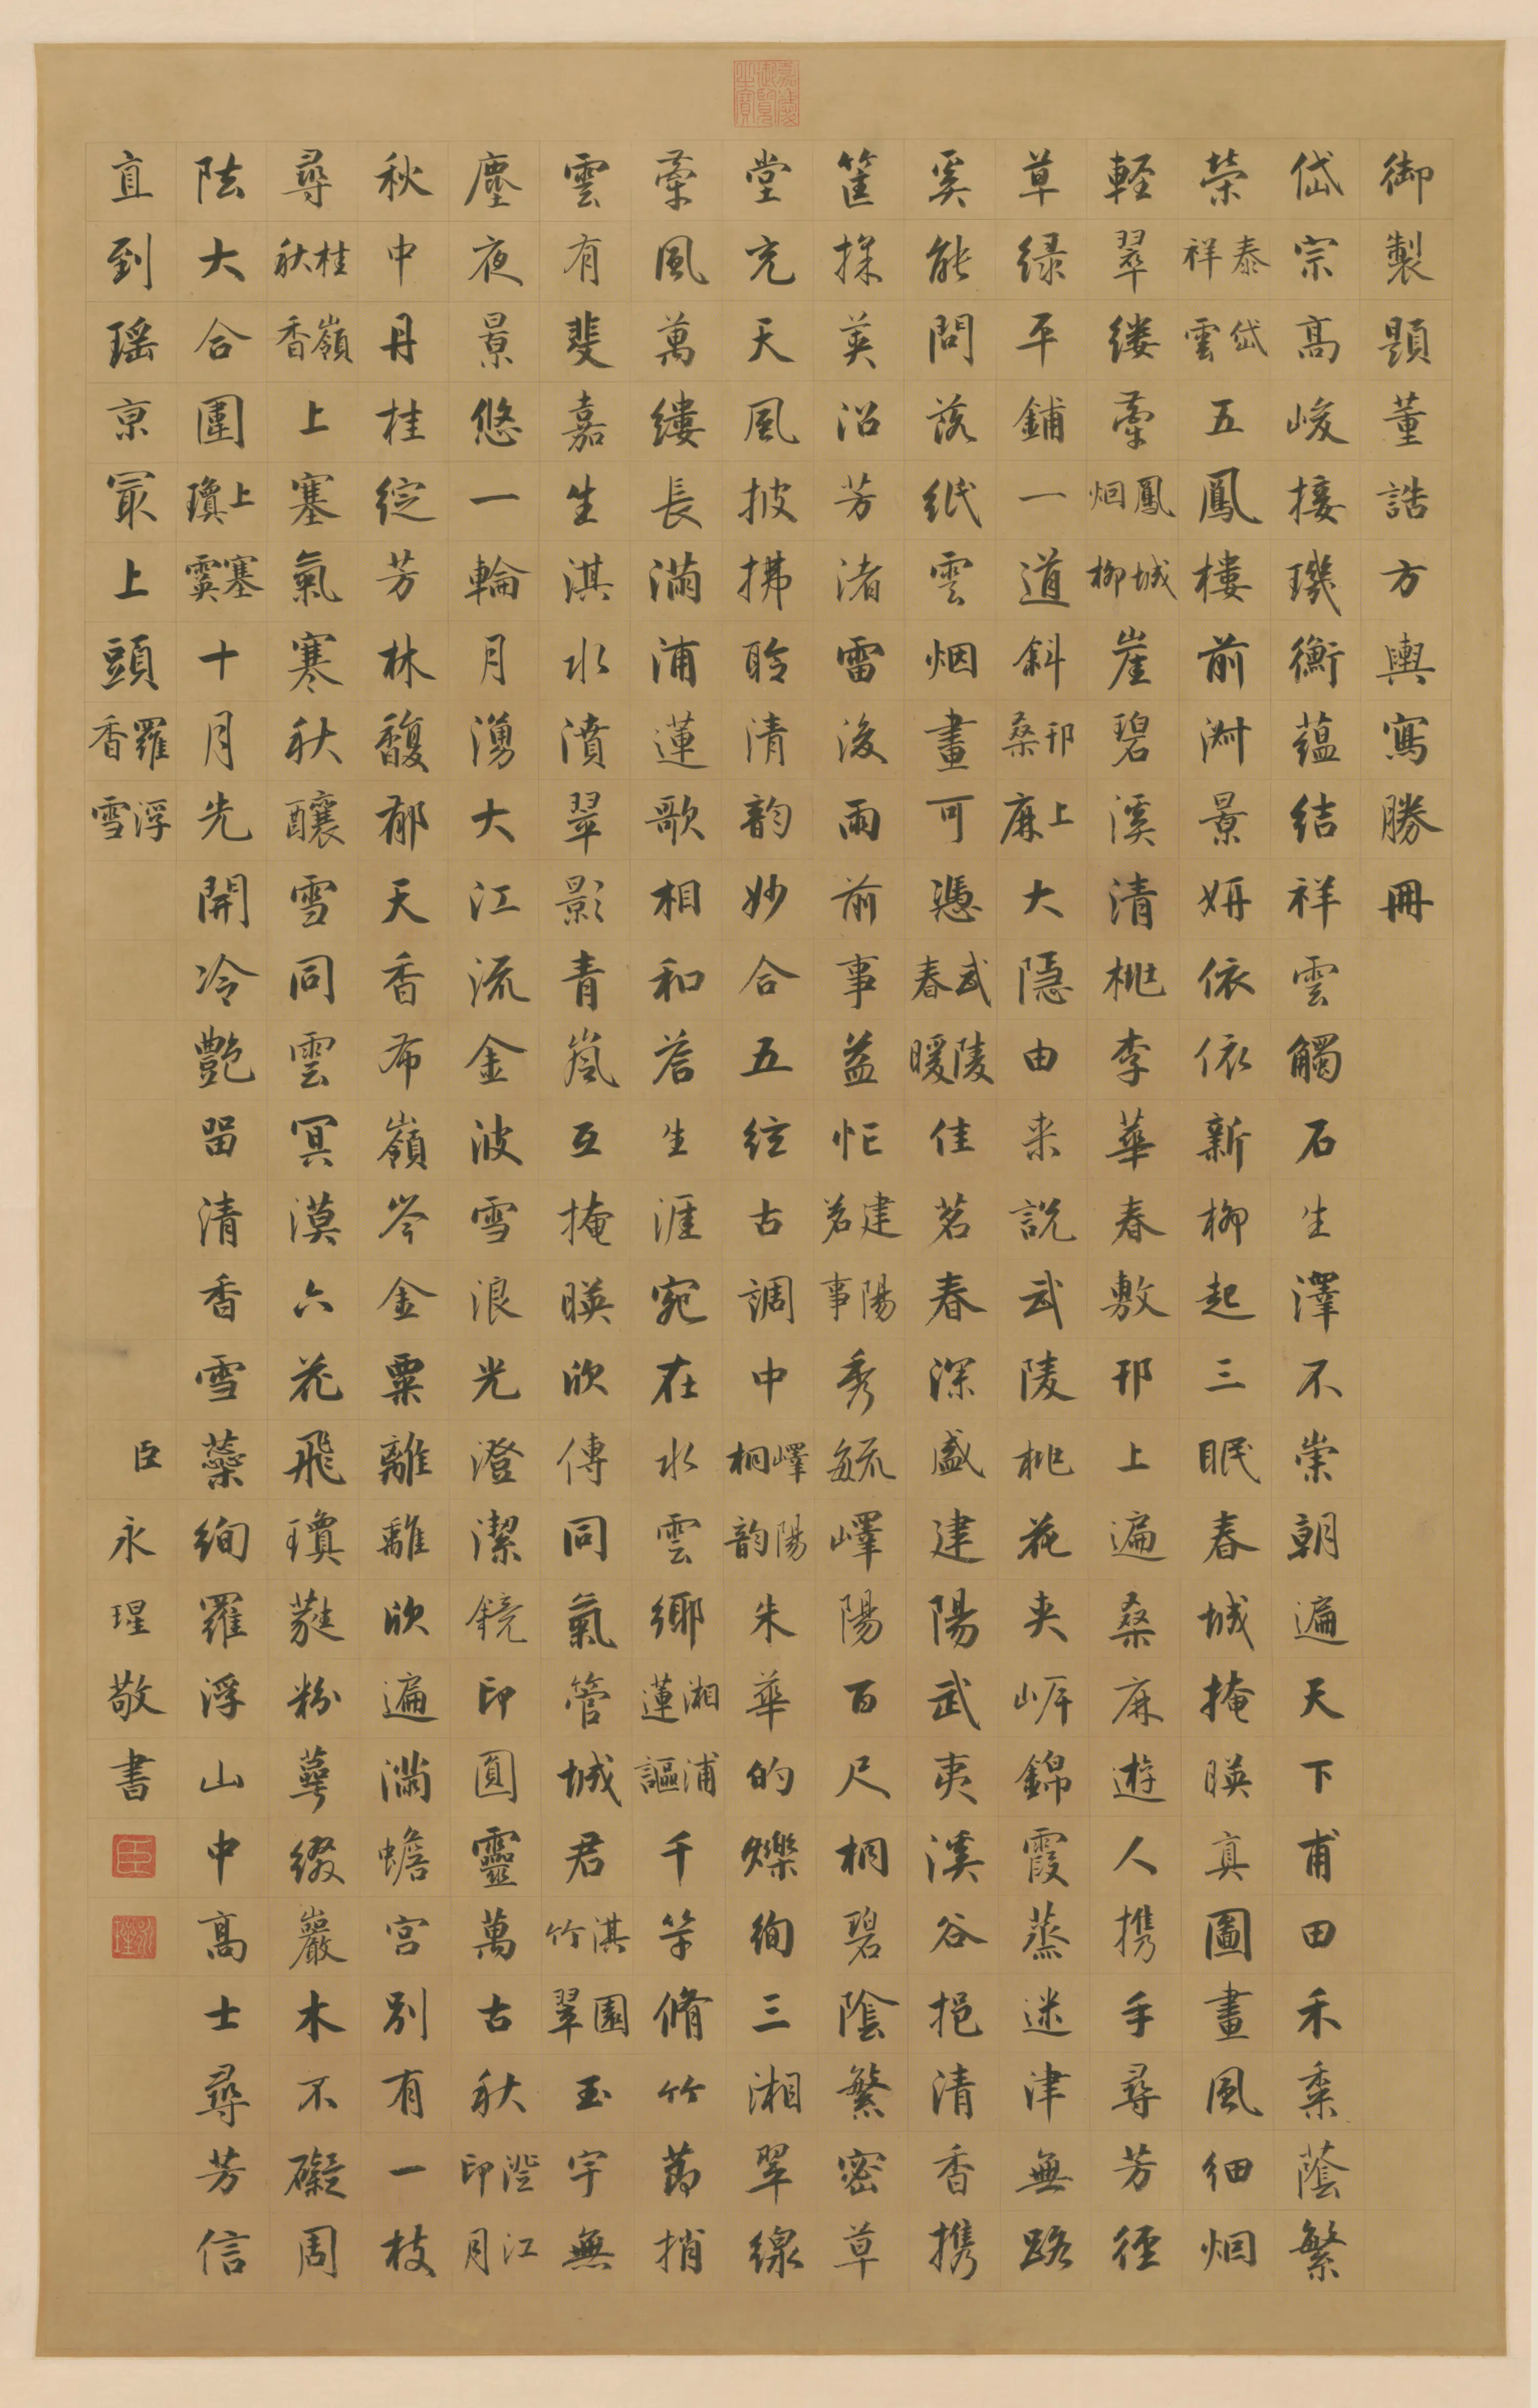 御製題董誥方輿寫勝冊
岱宗高峻接璣衡蘊結祥雲觸石生澤不崇朝遍天下甫田禾黍蔭繁
榮泰岱祥雲五鳳樓前淑景妍依依新柳起三眠春城掩暎真圖畫風細烟
輕翠縷牽鳳城烟柳崖碧溪清桃李華春敷邗上遍桑麻遊人携手尋芳徑
草綠平鋪一道斜邗上桑麻大隱由来說武陵桃花夾岸錦霞蒸迷津無路
奚能問落紙雲烟畫可憑武陵春暖佳茗春深盛建陽武夷溪谷挹清香携
筐採英沿芳渚雷後雨前事益忙建陽茗事秀毓嶧陽百尺桐碧陰繁密草
堂充天風披拂聆清韵妙合五絃古調中嶧陽桐韵朱華的爍絢三湘翠線
牽風萬縷長滿浦蓮歌相和答生涯宛在水雲鄉湘浦蓮謳千竿脩竹蔚捎
雲有斐嘉生淇水濆翠影青嵐互掩暎欣傳同氣管城君淇園竹翠玉宇無
塵夜景悠一輪月湧大江流金波雪浪光澄潔鏡印圓靈萬古秋澄江印月
秋中丹桂綻芳林馥郁天香布嶺岑金粟離離欣遍滿蟾宮別有一枝
尋桂嶺秋香上塞氣寒秋釀雪同雲冥漠六花飛瓊蕤粉萼綴巖木不礙周
阹大合圍上塞瓊霙十月先開冷艷留清香雪蘂絢羅浮山中高士尋芳信
直到瑤京冣上頭羅浮香雪
臣永瑆敬書